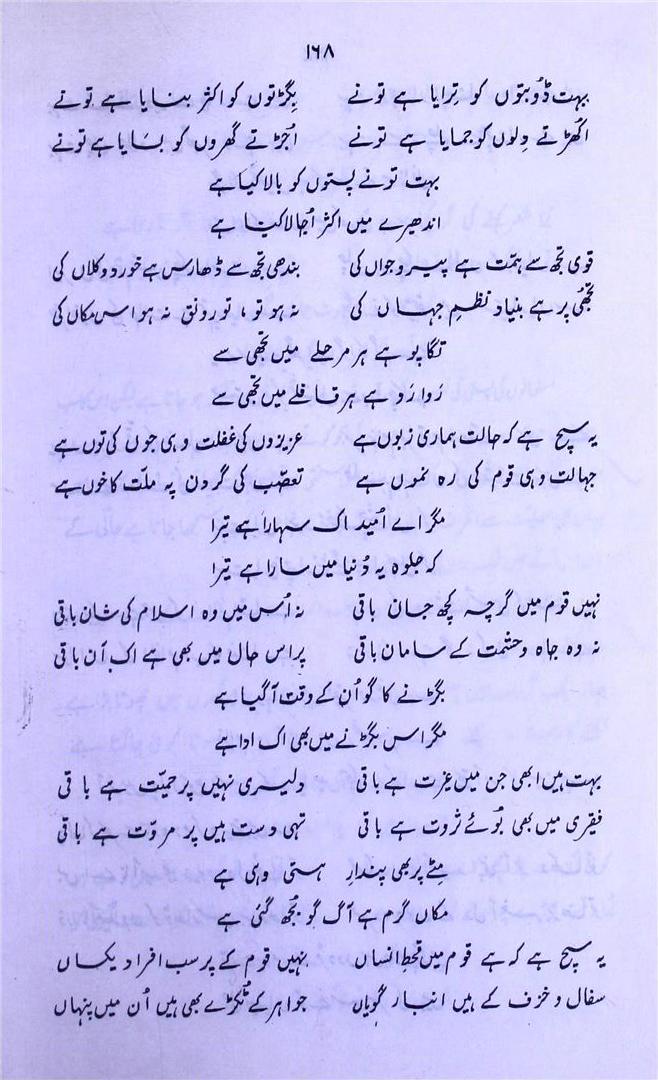 ۱۶۸
بہت ڈوبتوں کو تِرایا ہے تونے بِگڑتوں کو اکثر بنایا ہے تونے
اکھڑتے دِلوں کو جمایا ہے تونے اُجڑتے گھروں کو بسَایا ہے تونے
بہت تونے پستوں کو بالا کیا ہے
اندھیرے میں اکثر اُجالا کیا ہے
قوی تجھ سے ہمّت ہے پیر و جواں کی بندھی تجھ سے ڈھارس ہے خورد و کلاں کی
تجھُی پر ہے بنیاد نظمِ جہاں کی نہ ہو تو ، تو رونق نہ ہو اس مکاں کی
تگاپو ہے ہر مرحلے میں تجھی سے
رَوارَو ہے ہر قافلے میں تجھی سے
یہ سچ ہے کہ حالت ہماری زبوں ہے عزیزوں کی غفلت وہی جوں کی توں ہے
جہالت وہی قوم کی رہ نموں ہے تعصّب کی گردن پہ ملّت کا خوں ہے
مگر اے اُمید اک سہارا ہے تیرا
کہ جلوہ یہ دُنیا میں سارا ہے تیرا
نہیں قوم میں گرچہ کچھ جان باقی نہ اُس میں وہ اسلام کی شان باقی
نہ وہ جاہ و حشمت کے سامان باقی پر اس حال میں بھی ہے اک آن باقی
بگڑنے کا گو اُن کے وقت آگیا ہے
مگر اس بگڑنے میں بھی اک ادا ہے
بہت ہیں ابھی جن میں غیرت ہے باقی دلیری نہیں پر حمیّت ہے باقی
فقیری میں بھی بُوئے ثروت ہے باقی تہی دست ہیں پر مروّت ہے باقی
مِٹے پر بھی پندارِ ہستی وہی ہے
مکاں گرم ہے آگ گو بُجھ گئی ہے
یہ سچ ہے کہ ہے قوم میں قحطِ انساں نہیں قوم کے پر سب افراد یکساں
سفال و خزف کے ہیں انبار گویاں جواہر کے ٹکڑے بھی ہیں اُن میں پنہاں